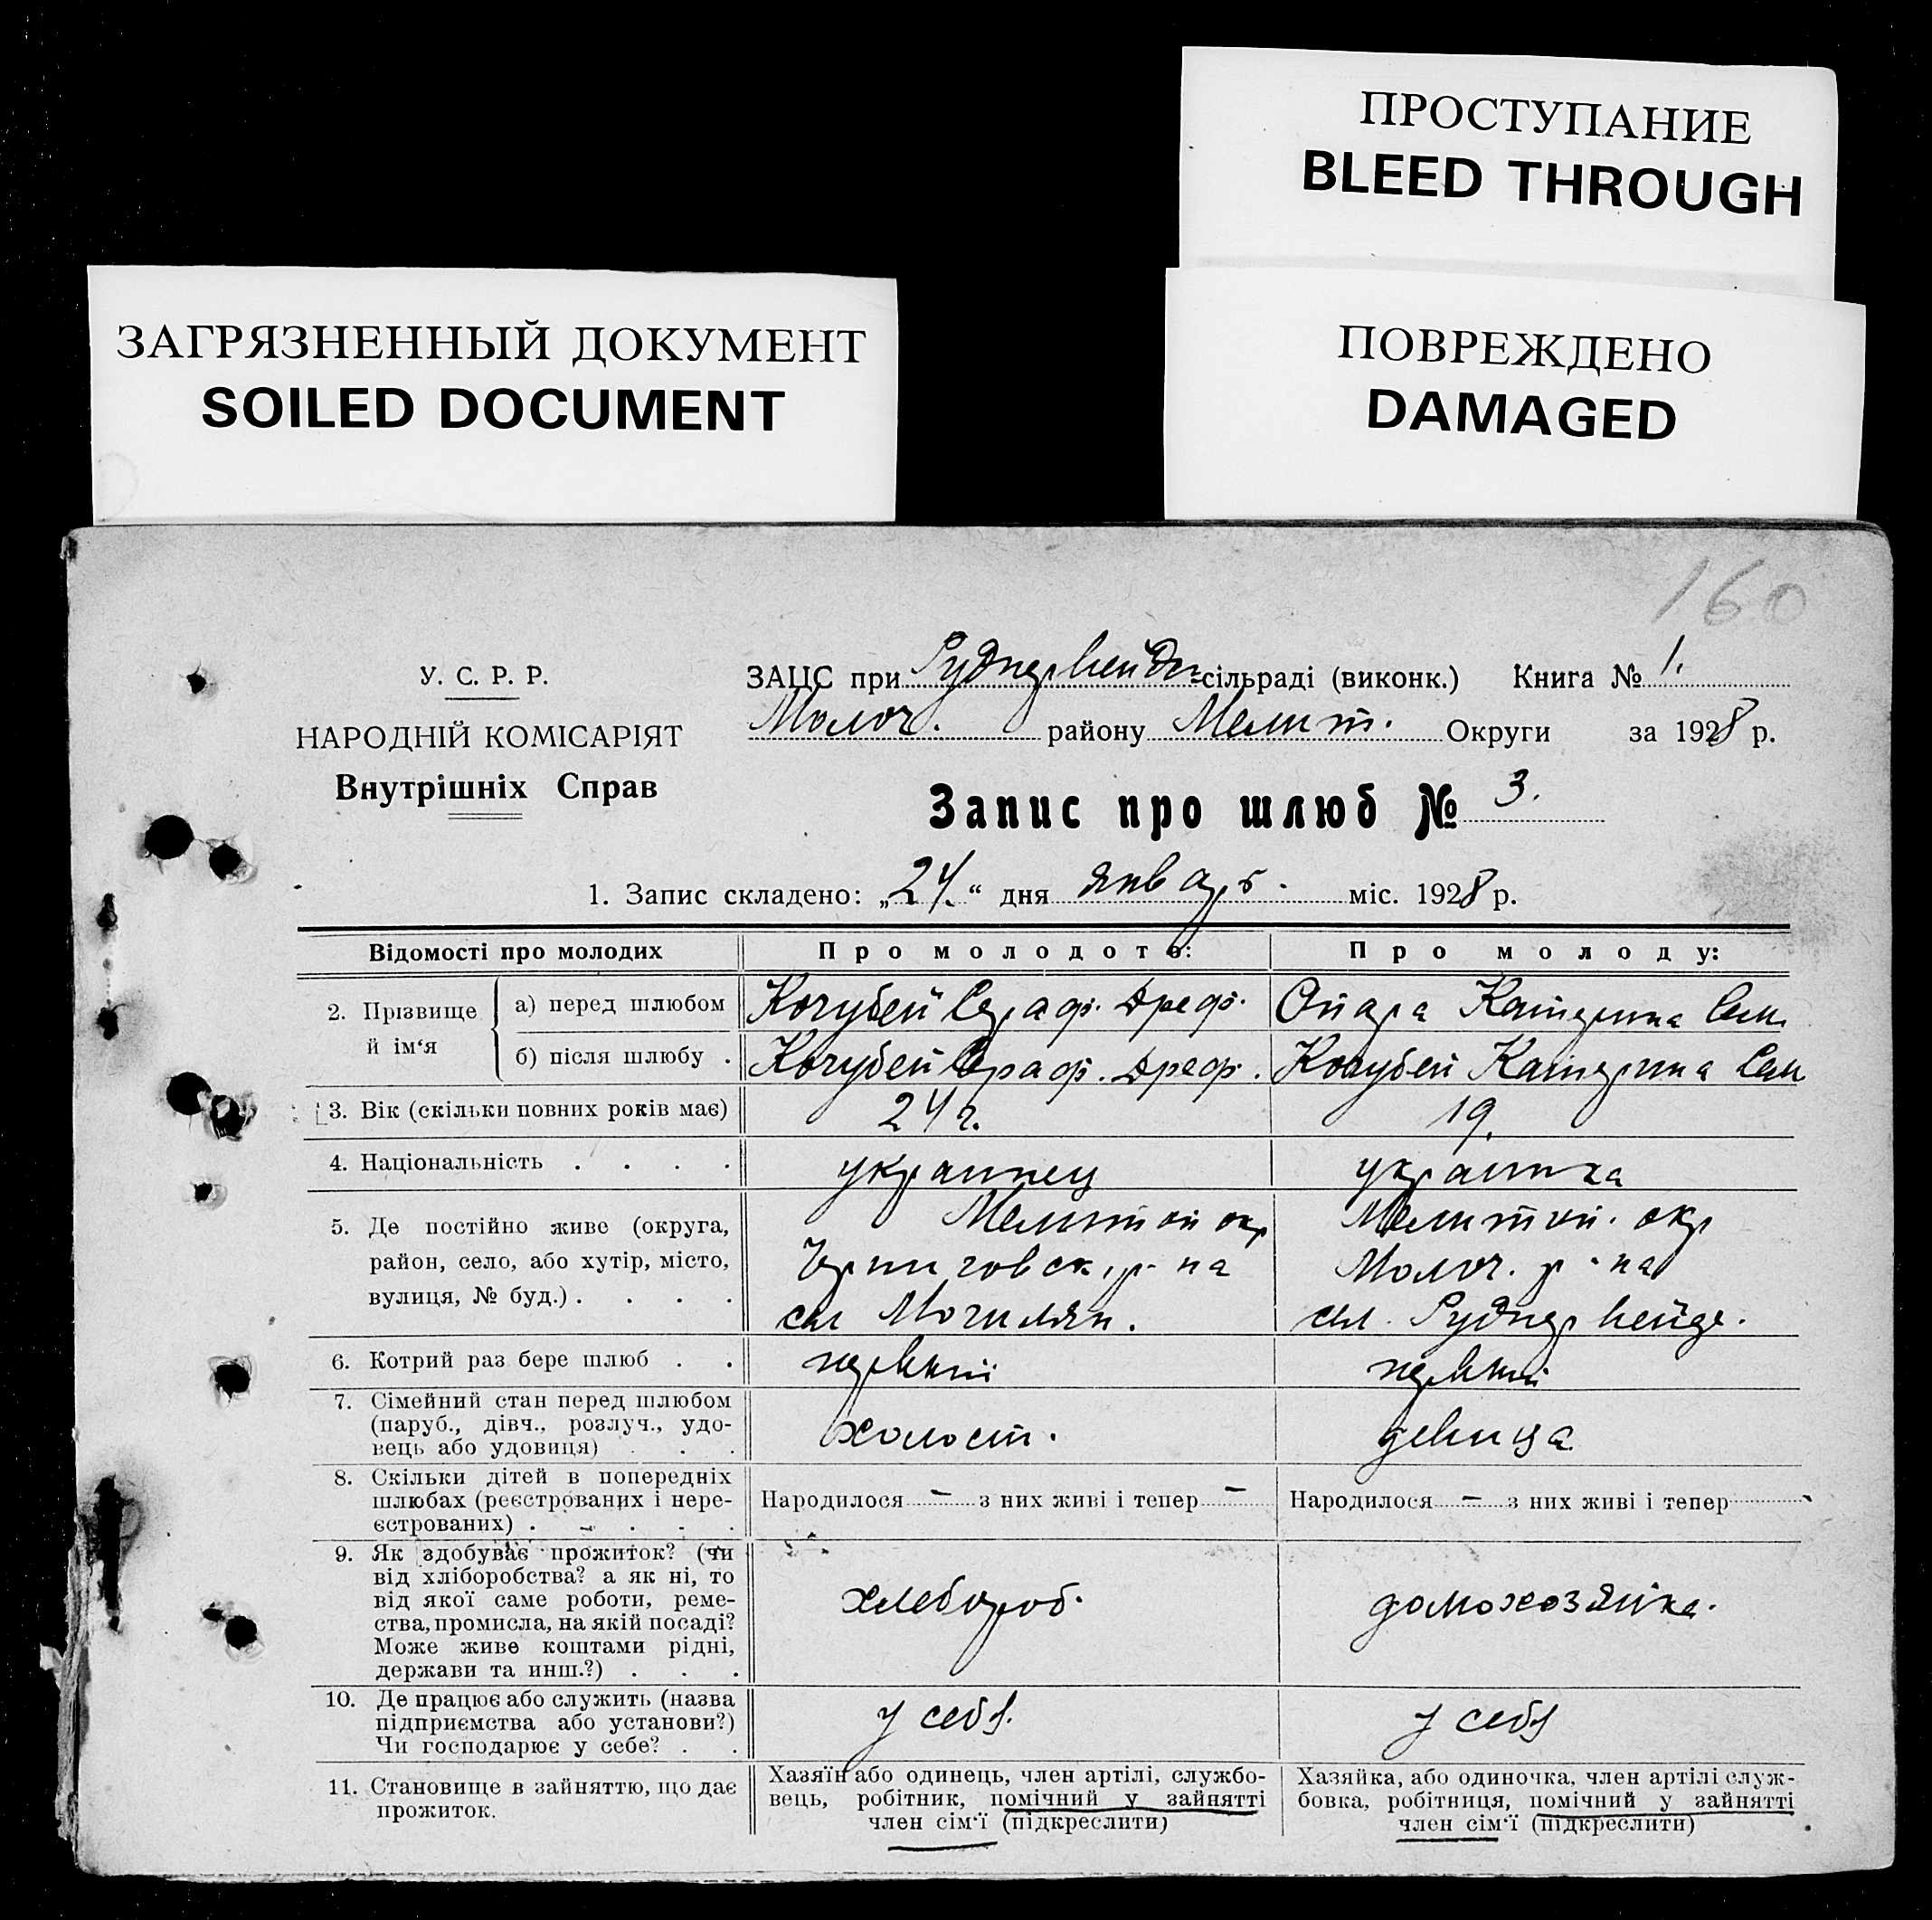 ПРОСТУПАНИЕ
BLEED THROUGH
ЗАГРЯЗНЕННЫЙ ДОКУМЕНТ
SOILED DOCUMENT
ПОВРЕЖДЕНО
DAMAGED
160
У. С. Р. Р.
НАРОДНІЙ КОМІСАРІЯТ
Внутрішніх Справ
ЗАЦС при Руднервейдск сільраді (виконк.) Книга № 1.
Молоч. району Мелит. Округи за 1928 р.
Запис про шлюб № 3.
1. Запис складено: „24“ дня января міс. 1928 р.
Відомості про молодих
Про молодого:
Про молоду:
2. Прізвище й ім‘я
а) перед шлюбом
Кочубей Сераф. Ореф.
Опара Катерина Сем.
б) після шлюбу .
Кочубей Сераф. Ореф.
Кочубей Катерина Сем
3. Вік (скільки повних років має)
24 г.
19.
4. Національність . . . .
украинец
украинка
5. Де постійно живе (округа,
район, село, або хутір, місто,
вулиця, № буд.) . . . .
Мелитоп окр
Черниговск. р-на
сел Могилян.
Мелитоп. окр
Молоч. р-на
сел. Руднервейде.
6. Котрий раз бере шлюб . .
первый
первый
7. Сімейний стан перед шлюбом
(паруб., дівч., розлуч., удо-
вець або удовиця) . . .
холост.
девица
8. Скільки дітей в попередніх
шлюбах (реєстрованих і нере-
єстрованих) . . . . .
Народилося — з них живі і тепер —
Народилося — з них живі і тепер
9. Як здобуває прожиток? (чи
від хліборобства? а як ні, то
від якої саме роботи, реме-
ства, промисла, на якій посаді?
Може живе коштами рідні,
держави та инш.?) . . .
хлебороб.
домохозяйка.
10. Де працює або служить (назва
підприємства або установи?)
Чи господарює у себе? . .
у себя.
у себя
11. Становище в зайняттю, що дає
прожиток.
Хазяїн або одинець, член артілі, службо-
вець, робітник, помічний у зайнятті
член сім‘ї (підкреслити)
Хазяйка, або одиночка, член артілі служ-
бовка, робітниця, помічний у зайнятті
член сім‘ї (підкреслити)